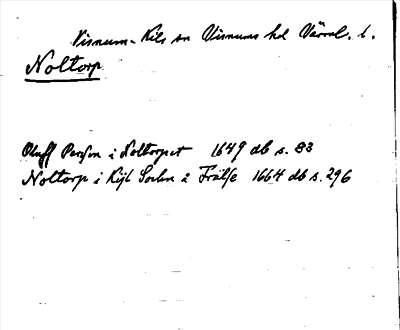 Visnum-Kils sn Visnums hd Värml. l.
Noltorp
Oluff Perszon i Noltorpet 1649 db s. 83
Noltorp i Kijl Sochn 2 Frälse 1664 db s. 296